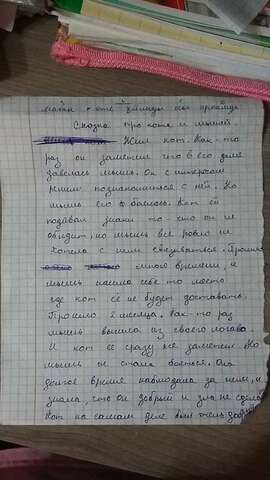 Сказка про кота и мышей
Жил кот. Как-то
раз он заметил что в его доме
завелась мышь. Он с интересом
решил познакомиться с ней. Но
мышь его боялась. Кот ей
подавал знаки то-что он не
обидит, но мышь всё ровно не
хотела с ним связываться. Прошло
много времени, и
мышь нашла себе то место
где кот её не будет доставать.
Прошло 2 месяца. Как-то раз
мышь вышла из своего логова.
И кот её сразу же заметил. Но
мышь не стала бояться. Она
долгое время наблюдала за ним, и
знала, что он добрый и зла не сделает
Кот на самом деле был очень